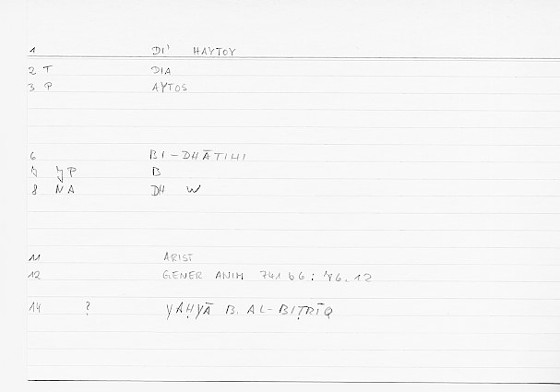 1 DI' HAYTOY
2 T DIA
3 P AYTOS
6 BI-DHĀTIHI
B
8 NA DH W
11 ARIST
12 GENER ANIM 741 b6: 86.12
14 ? YAḤYĀ B. AL-BIṬRĪQ